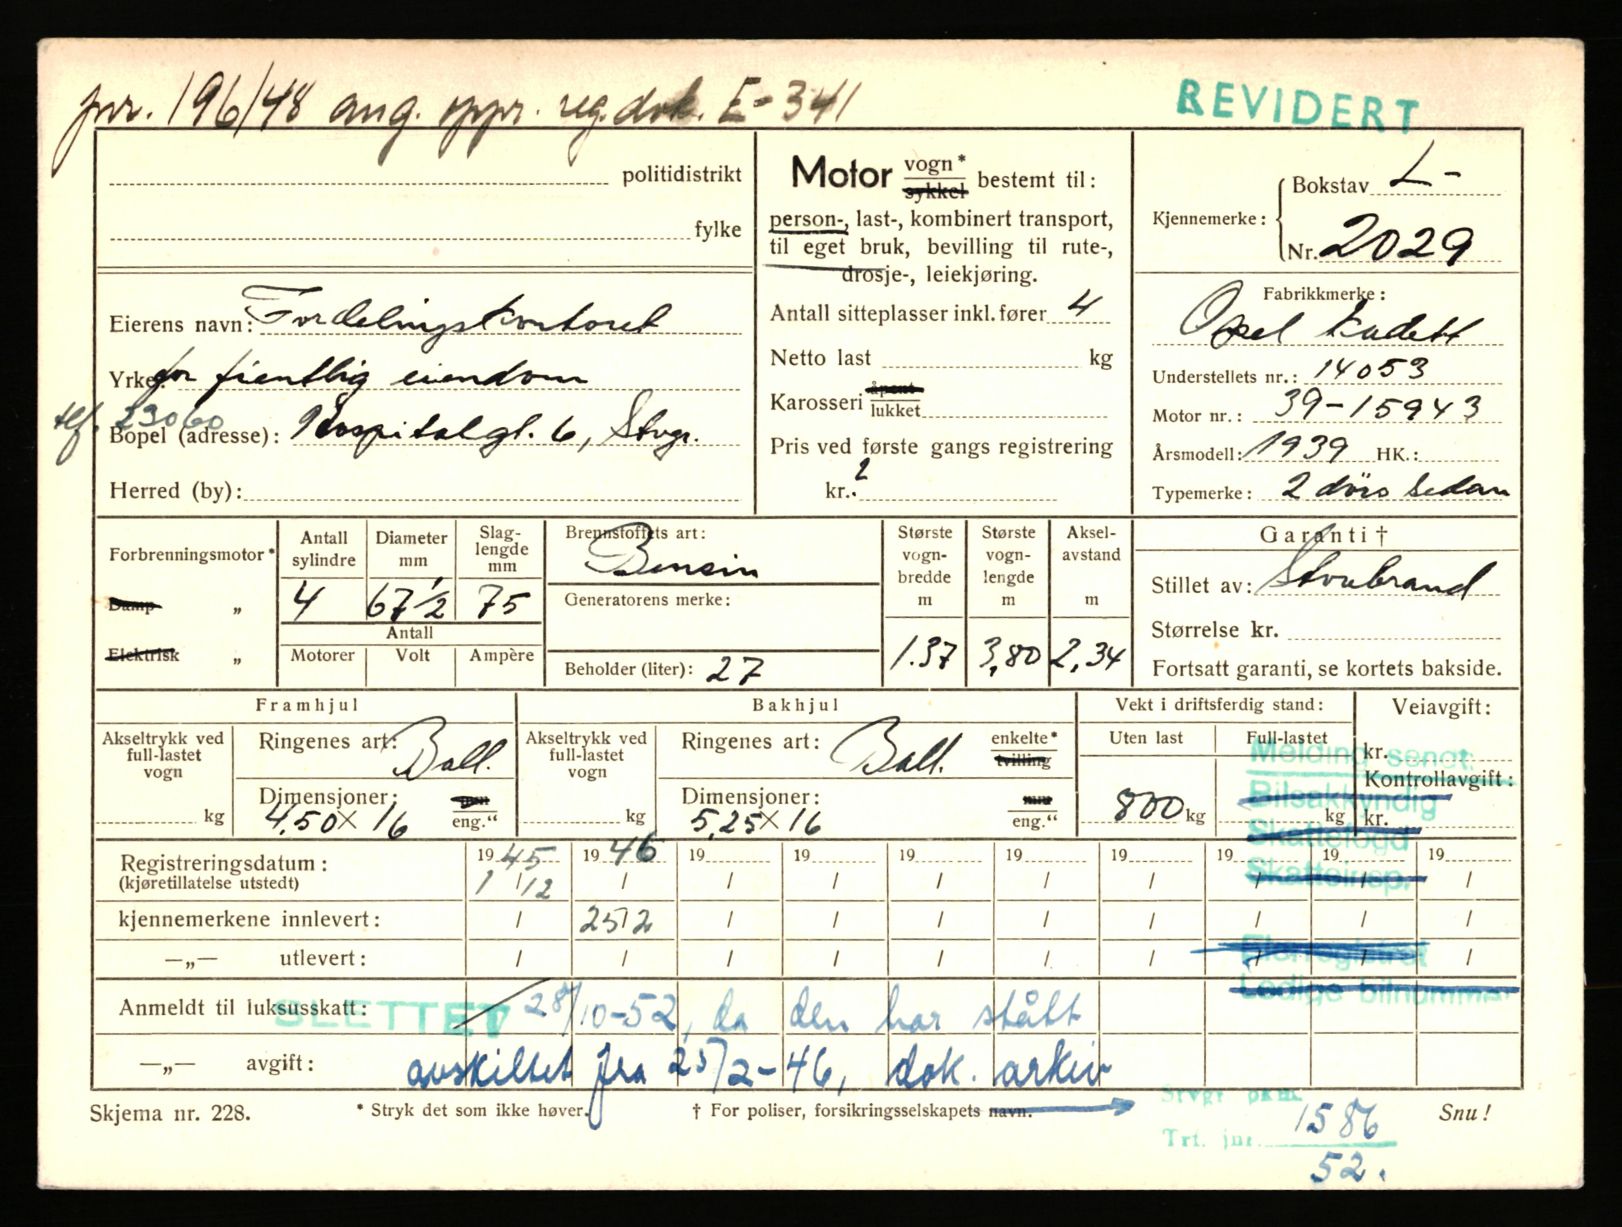 jnr. 196/48 ang. oppr. reg.dok. E-341
REVIDERT
politidistrikt
fylke
Eierens navn: Fordelingskontoret
Yrke: for fientlig eiendom
tlf. 23060
Bopel (adresse): Hospitalgt. 6, Stvgr.
Herred (by):
Motor vogn* sykkel bestemt til:
person-, last-, kombinert transport,
til eget bruk, bevilling til rute-,
drosje-, leiekjøring.
Antall sitteplasser inkl. fører 4
Netto last kg
Karosseri åpent lukket
Pris ved første gangs registrering
kr.
Kjennemerke: Bokstav L-
Nr. 2029
Fabrikkmerke:
Opel Kadett
Understellets nr.: 14053
Motor nr.: 39-15943
Årsmodell: 1939 HK.:
Typemerke: 2 dørs Sedan
Forbrenningsmotor*
Damp „
Elektrisk „
Antall sylindre 4
Diameter mm 67 1/2
Slaglengde mm 75
Antall
Motorer Volt Ampère
Brennstoffets art: Bensin
Generatorens merke:
Beholder (liter): 27
Største vognbredde m 1.37
Største vognlengde m 3,80
Akselavstand m 2,34
Garanti †
Stillet av: Storebrand
Størrelse kr.
Fortsatt garanti, se kortets bakside.
Framhjul
Akseltrykk ved full-lastet vogn kg
Ringenes art: Ball.
Dimensjoner: 4,50 x 16 eng.“
Bakhjul
Akseltrykk ved full-lastet vogn kg
Ringenes art: Ball. enkelte* tvilling
Dimensjoner: 5,25 x 16 eng.“
Vekt i driftsferdig stand:
Uten last 800 kg
Full-lastet kg
Veiavgift:
kr.
Kontrollavgift:
kr.
Melding sendt:
Bilsakkyndig
Skattefogd
Skatteinsp.
Eierregistret
Ledige bilnummer
Registreringsdatum: 1945 1946 19 19 19 19 19 19 19 19
(kjøretillatelse utstedt) 1/12 / / / / / / / / /
kjennemerkene innlevert: / 25/2 / / / / / / / /
—„— utlevert: / / / / / / / / / /
Anmeldt til luksusskatt: SLETTET 28/10-52, da den har stått
—„— avgift: avskiltet fra 25/2-46, dok. arkiv
Skjema nr. 228.
* Stryk det som ikke høver.
† For poliser, forsikringsselskapets navn.
Snu!
Trf. jnr. 1586
52.